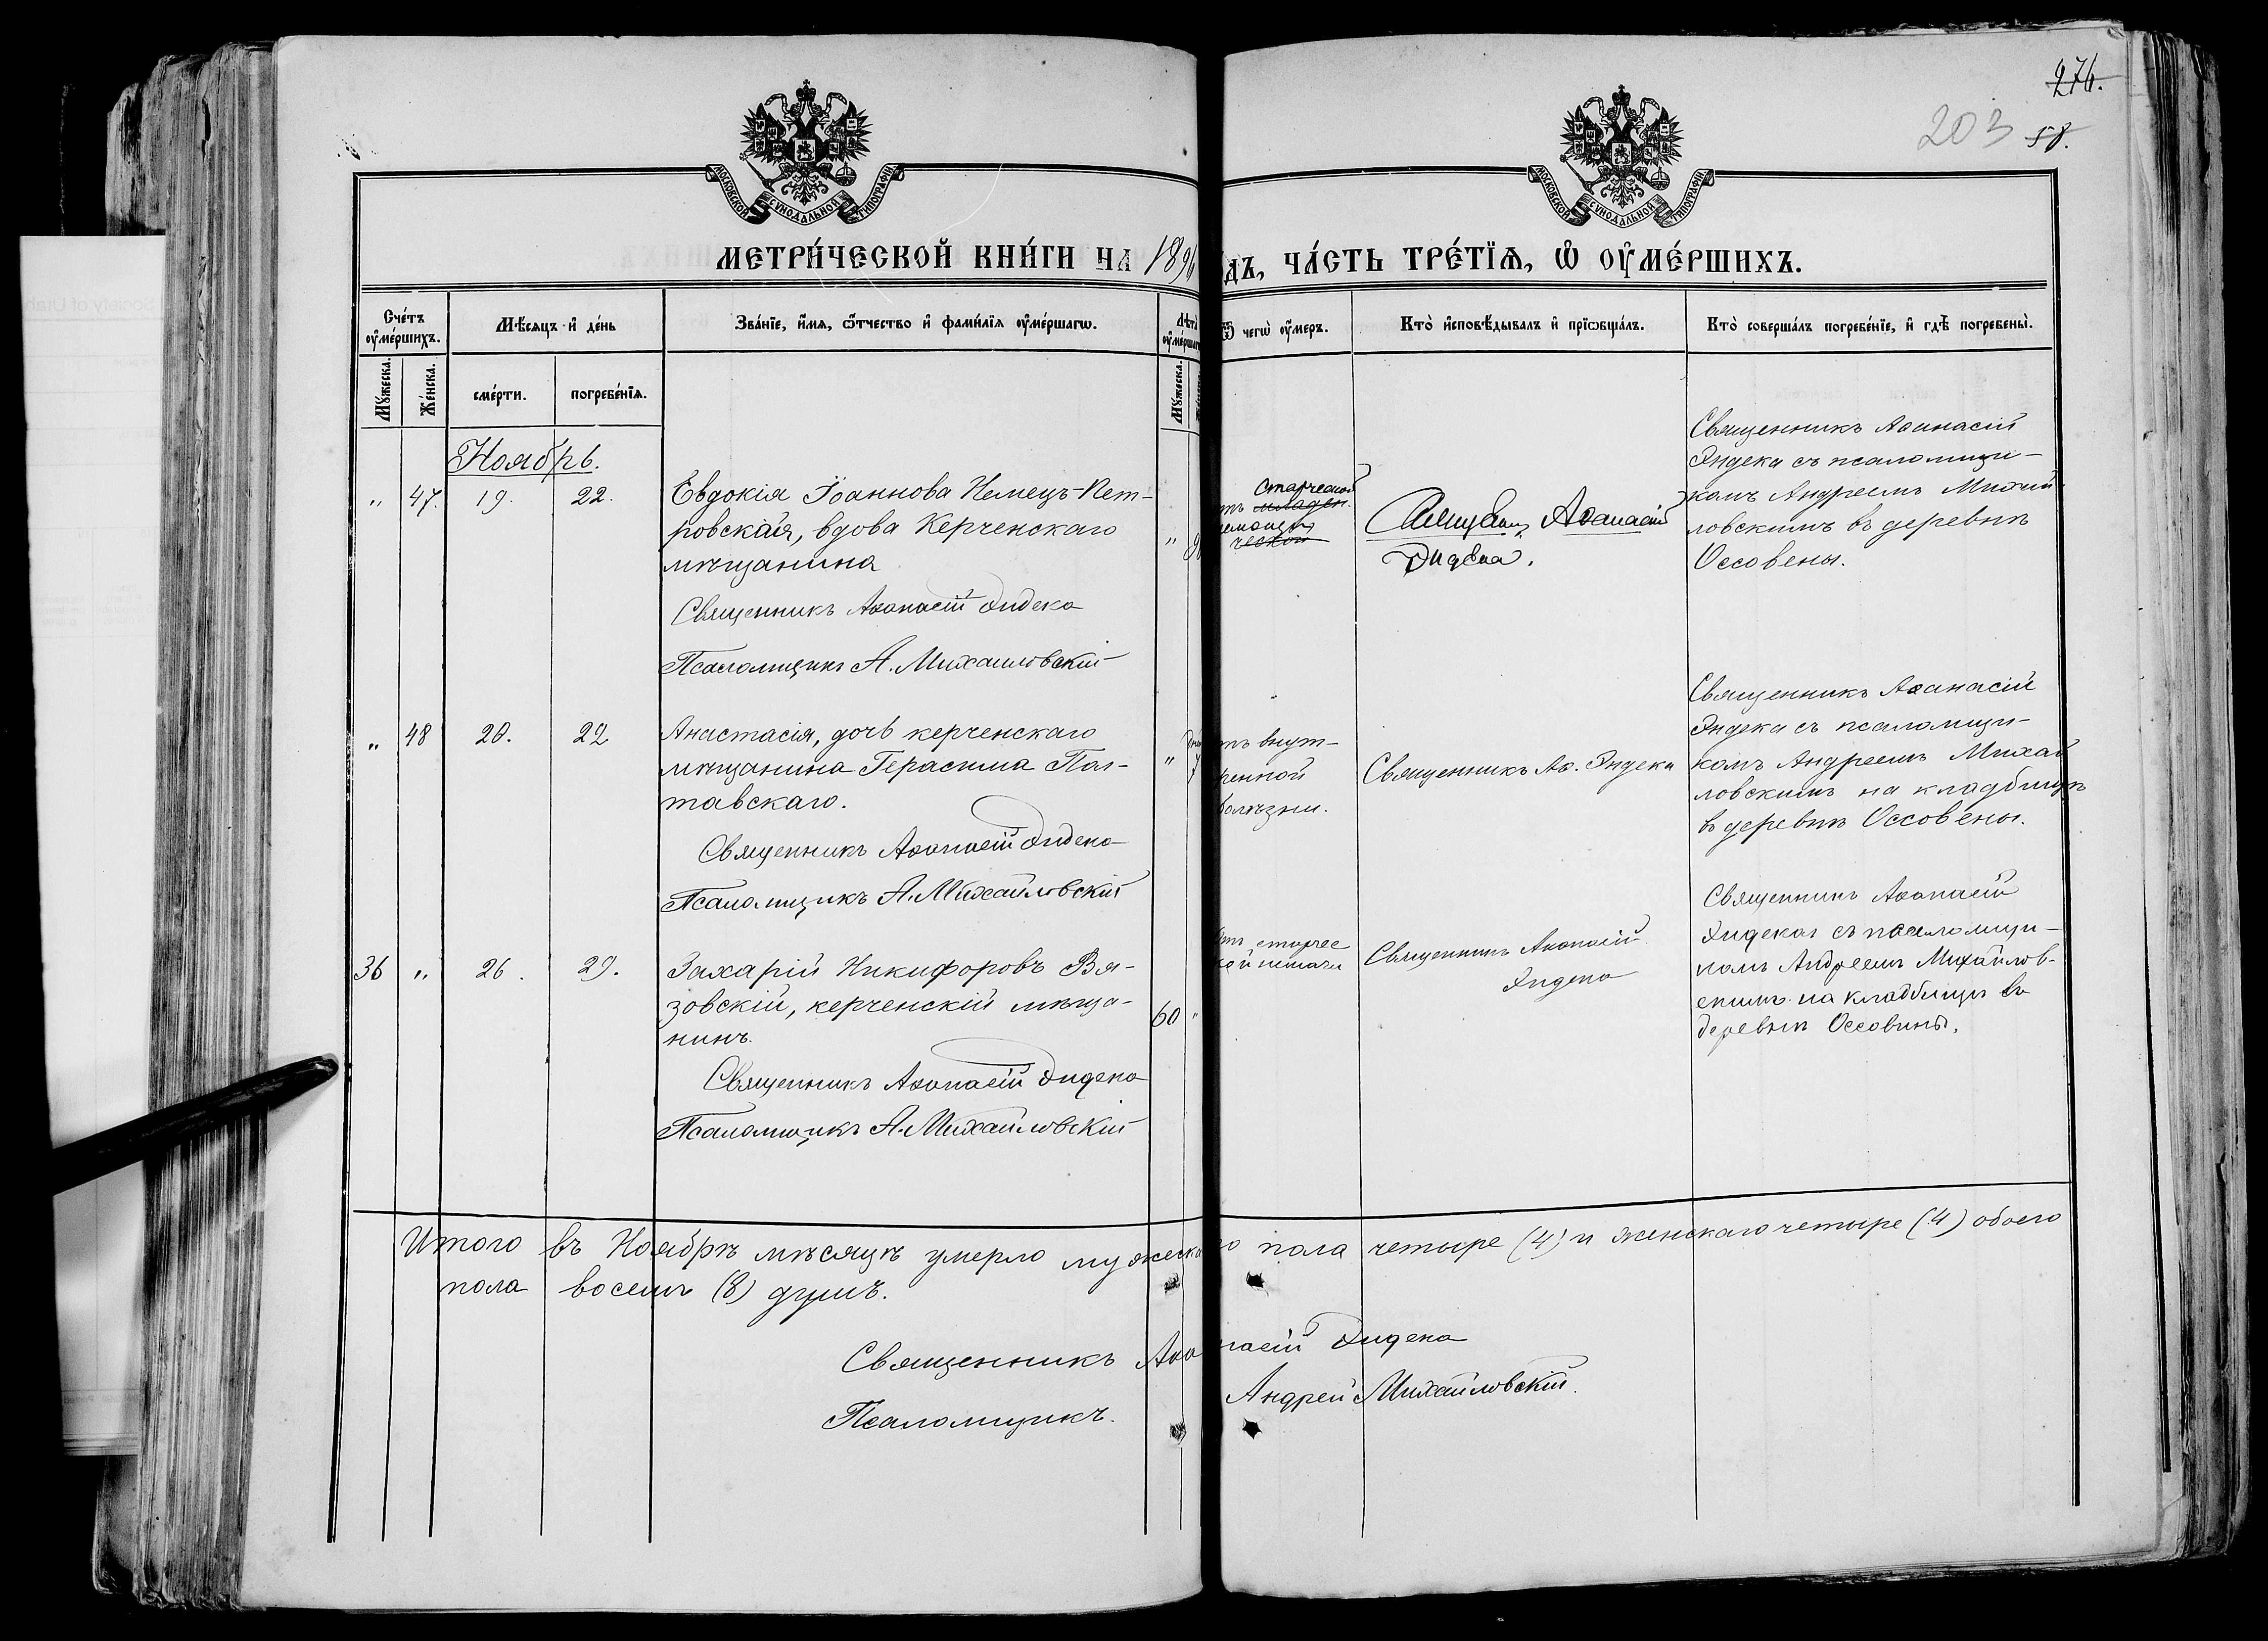 276.
203 58.
МОСКОВСКОЙ СѴНОДАЛЬНОЙ ТИПОГРАФІИ
МОСКОВСКОЙ СѴНОДАЛЬНОЙ ТИПОГРАФІИ
МЕТРИ́ЧЕСКОЙ КНИ́ГИ НА 1896
ДЪ, ЧА́СТЬ ТРЕ́ТЇѦ, Ѡ҆ ОУ҆МЕ́РШИХЪ.
Сче́тъ оу҆ме́ршихъ.
Мѣ́сѧцъ и҆ де́нь
Зва́нїе, и҆́мѧ, ѻ҆́тчество и҆ фами́лїѧ оу҆ме́ршагѡ.
Лѣ́та оу҆ме́ршаг
Ѿ чегѡ̀ оу҆́меръ.
Кто̀ и҆сповѣ́дывалъ и҆ прїѡбща́лъ.
Кто̀ соверша́лъ погребе́нїе, и҆ гдѣ̀ погребены̀.
Мꙋ́жеска.
Же́нска.
сме́рти.
погребе́нїѧ.
Мꙋ́жеска.
Ноябрь.
" 47. 19. 22.
Евдокія Іоаннова Немецъ-Пет-
ровская, вдова Керченскаго
мѣщанина
Священникъ Аѳанасій Дидека
Псаломщикъ А. Михайловскій
"
старческой
младен.
ческой
Священ. Аѳанасій
Дидека.
Священникъ Аѳанасій
Дидека съ псаломщи-
комъ Андреемъ Михай
ловскимъ въ деревнѣ
Оссовены.
" 48 20. 22
Анастасія, дочь керченскаго
мѣщанина Герасима Пол-
тавскаго.
Священникъ Аѳанасій Дидека
Псаломщикъ А. Михайловскій
"
тъ внут-
ренной
болѣзни.
Священникъ Аѳ. Дидека
Священникъ Аѳанасій
Дидека съ псаломщи-
комъ Андреемъ Михай
ловскимъ на кладбищѣ
въ деревнѣ Оссовены.
36 " 26. 29.
Захарій Никифоровъ Вя-
зовскій, керченскій мѣща-
нинъ.
Священникъ Аѳанасій Дидека
Псаломщикъ А. Михайловскій
60 "
отъ старчес
кой немочи
Священникъ Аѳанасій
Дидека
Священникъ Аѳанасій
Дидека съ псаломщи-
комъ Андреемъ Михайлов-
скимъ на кладбищѣ въ
деревнѣ Оссовины.
Итого въ Ноябрѣ мѣсяцѣ умерло мужеска
го пола четыре (4) и женскаго четыре (4) обоего
пола восемь (8) душъ.
Священникъ Аѳа
насій Дидека
Псаломщикъ.
Андрей Михайловскій.